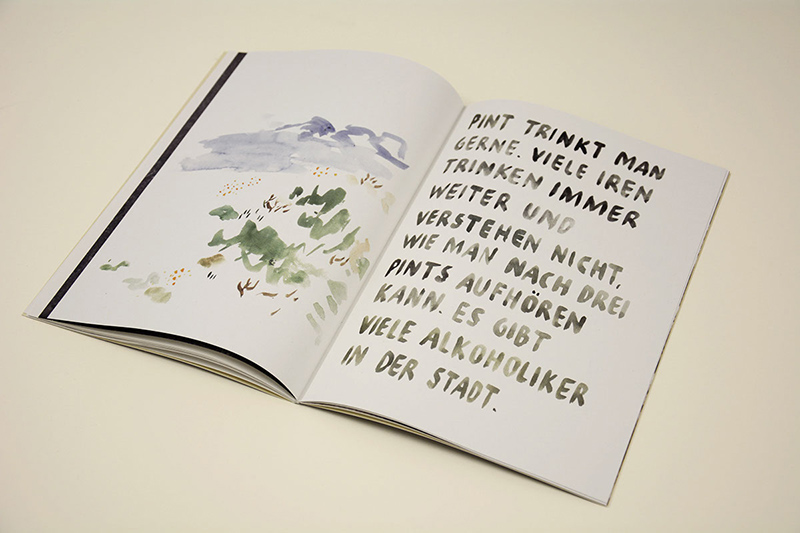 PINT TRINKT MAN
GERNE. VIELE IREN
TRINKEN IMMER
WEITER UND
VERSTEHEN NICHT,
WIE MAN NACH DREI
PINTS AUFHÖREN
KANN. ES GIBT
VIELE ALKOHOLIKER
IN DER STADT.